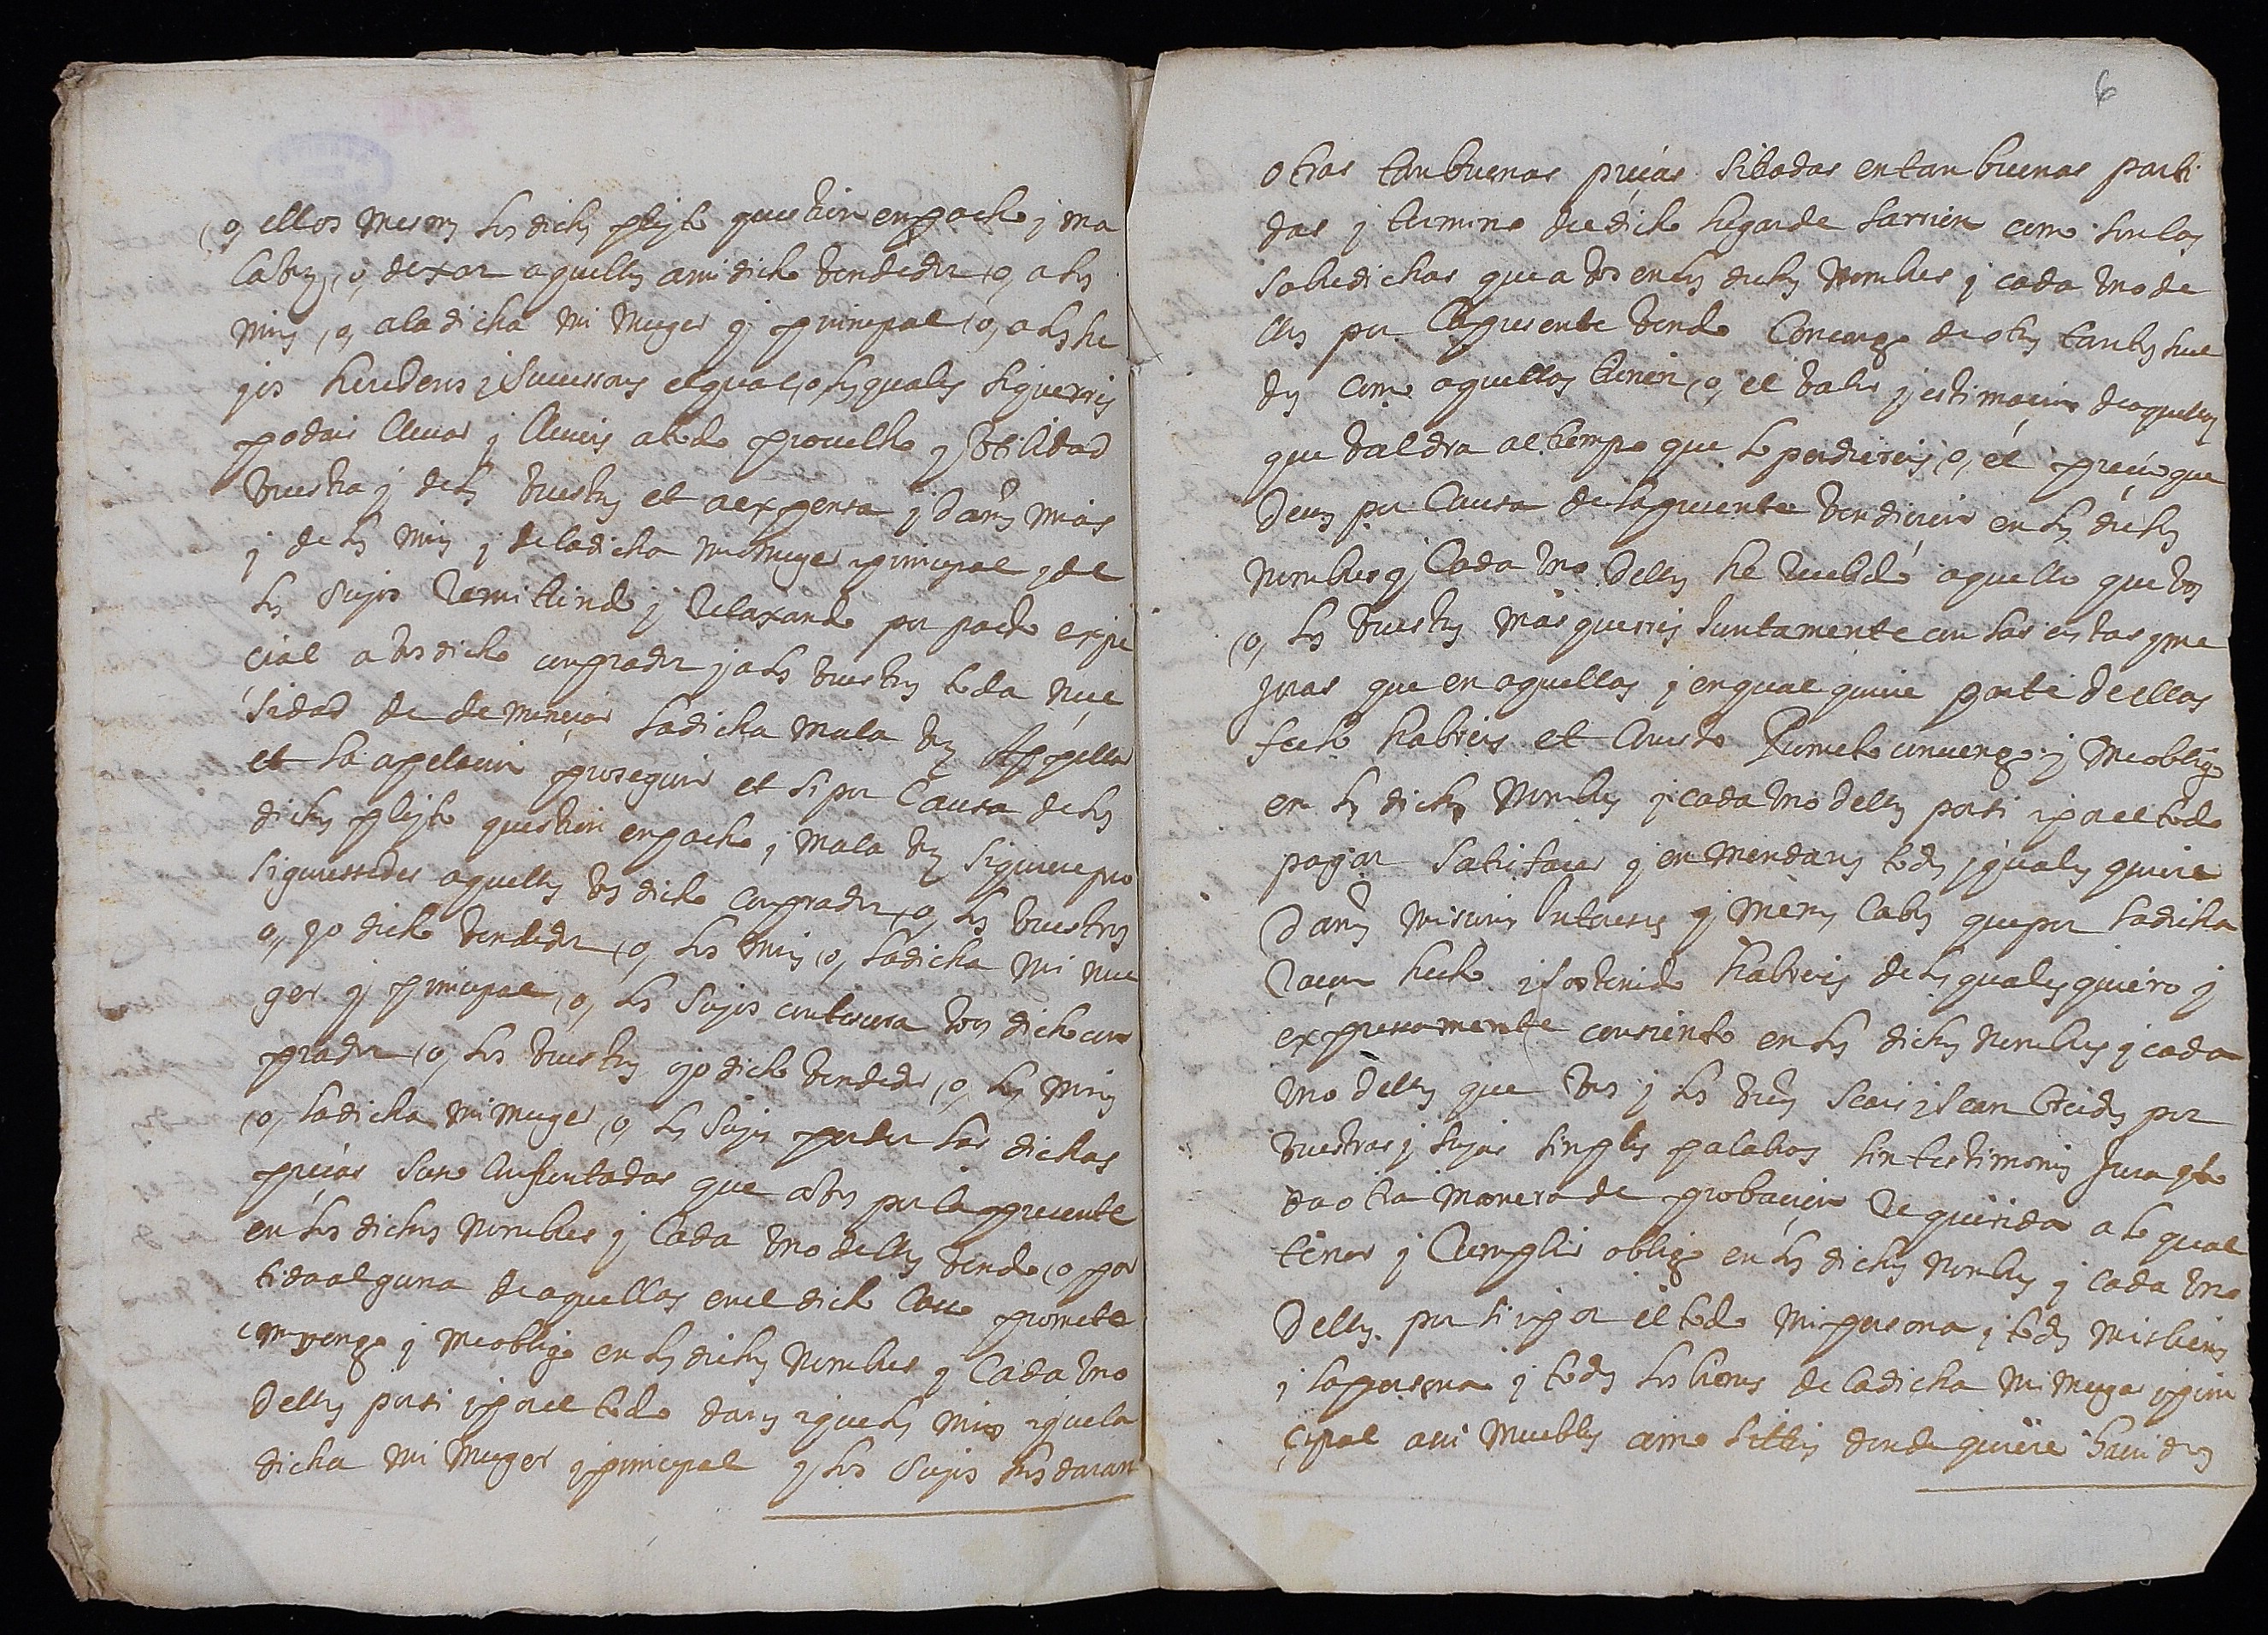 (o, ellos mesmos los dichos pleyto question enpacho y ma
la boz, o, dexar aquellos a mi dicho vendedor (o, a los
mios (o, a la dicha mi muger y principal (o, a los he
jos herederos y sucessores el qual, o, los quales siquerreis
podais llevar y lleveis a todo provecho y vtilidad
vuestra y de los vuestros et a expensa y daños mias
y de los mios y de la dicha mi muger y principal y de
los suyos remitiendo y relaxando por pacto espe
cial a vos dicho conprador y a los vuestros toda nece
sidad de denunciar la dicha mala voz Appellar
et la apelacion proseguir et si por causa de los
dichos pleyto question enpacho y mala voz siquiere pro
siguiessedes aquellos vos dicho conprador (o, los vuestros
o, yo dicho vendedor (o, los mios (o, la dicha mi mu
ger y principal, o, los suyos contecera vos dicho con
prador (o, los vuestros o yo dicho vendedor, o, los mios
(o, la dicha mi muger (o, los suyos perder las dichas
pieças suso confrontadas que a vos por la presente
en los dichos nombres y cada vno dellos vendo (o par
tida alguna de aquellas en el dicho caso prometo
convengo y me obligo en los dichos nombres y cada vno
dellos por si y por el todo daros y que los mios y que la
dicha mi muger y principal y los suyos hos daran
6
otras tan buenas pieças sitiadas en tan buenas parti
das y termino de dicho lugar de Sarrion como son las
sobredichas que a vos en los dichos nombres y cada vno de
llos por la presente vendo con cargo de otros tantos suel
dos como aquellas tienen, o, el valor y estimacion de aquellas
que valdra al tiempo que lo perdiereis, o, el precio que
devos por causa de la presente vendicion en los dichos
nombres y cada vno dellos he recebido aquello que vos
(o, los vuestros mas querreis juntamente con las costas y me
juras que en aquellas y en qual quiere parte de ellas
fecho habreis et cuesto Prometo convengo y me obligo
en los dichos nombres y cada vno dellos por si y por el todo
pagar satisfacer y enmendaros todos y quales quiere
daños misiones Intereses y menos cabos que por la dicha
raçon hecho y sostenido habreis de los quales quiero y
expressamente consiento en los dichos nombres y cada
vno dellos que vos y los vros seais y sean creidos por
vuestras y suyas simples palabras sin testimonios Jura y to
da otra manera de probacion requerida a lo qual
tener y cumplir obligo en los dichos nombres y cada vno
dellos por si y por el todo mi persona y todos mis bienes
y la persona y todos los bienes de la dicha mi muger y prin
cipal assi muebles como sittios donde quiere havidos